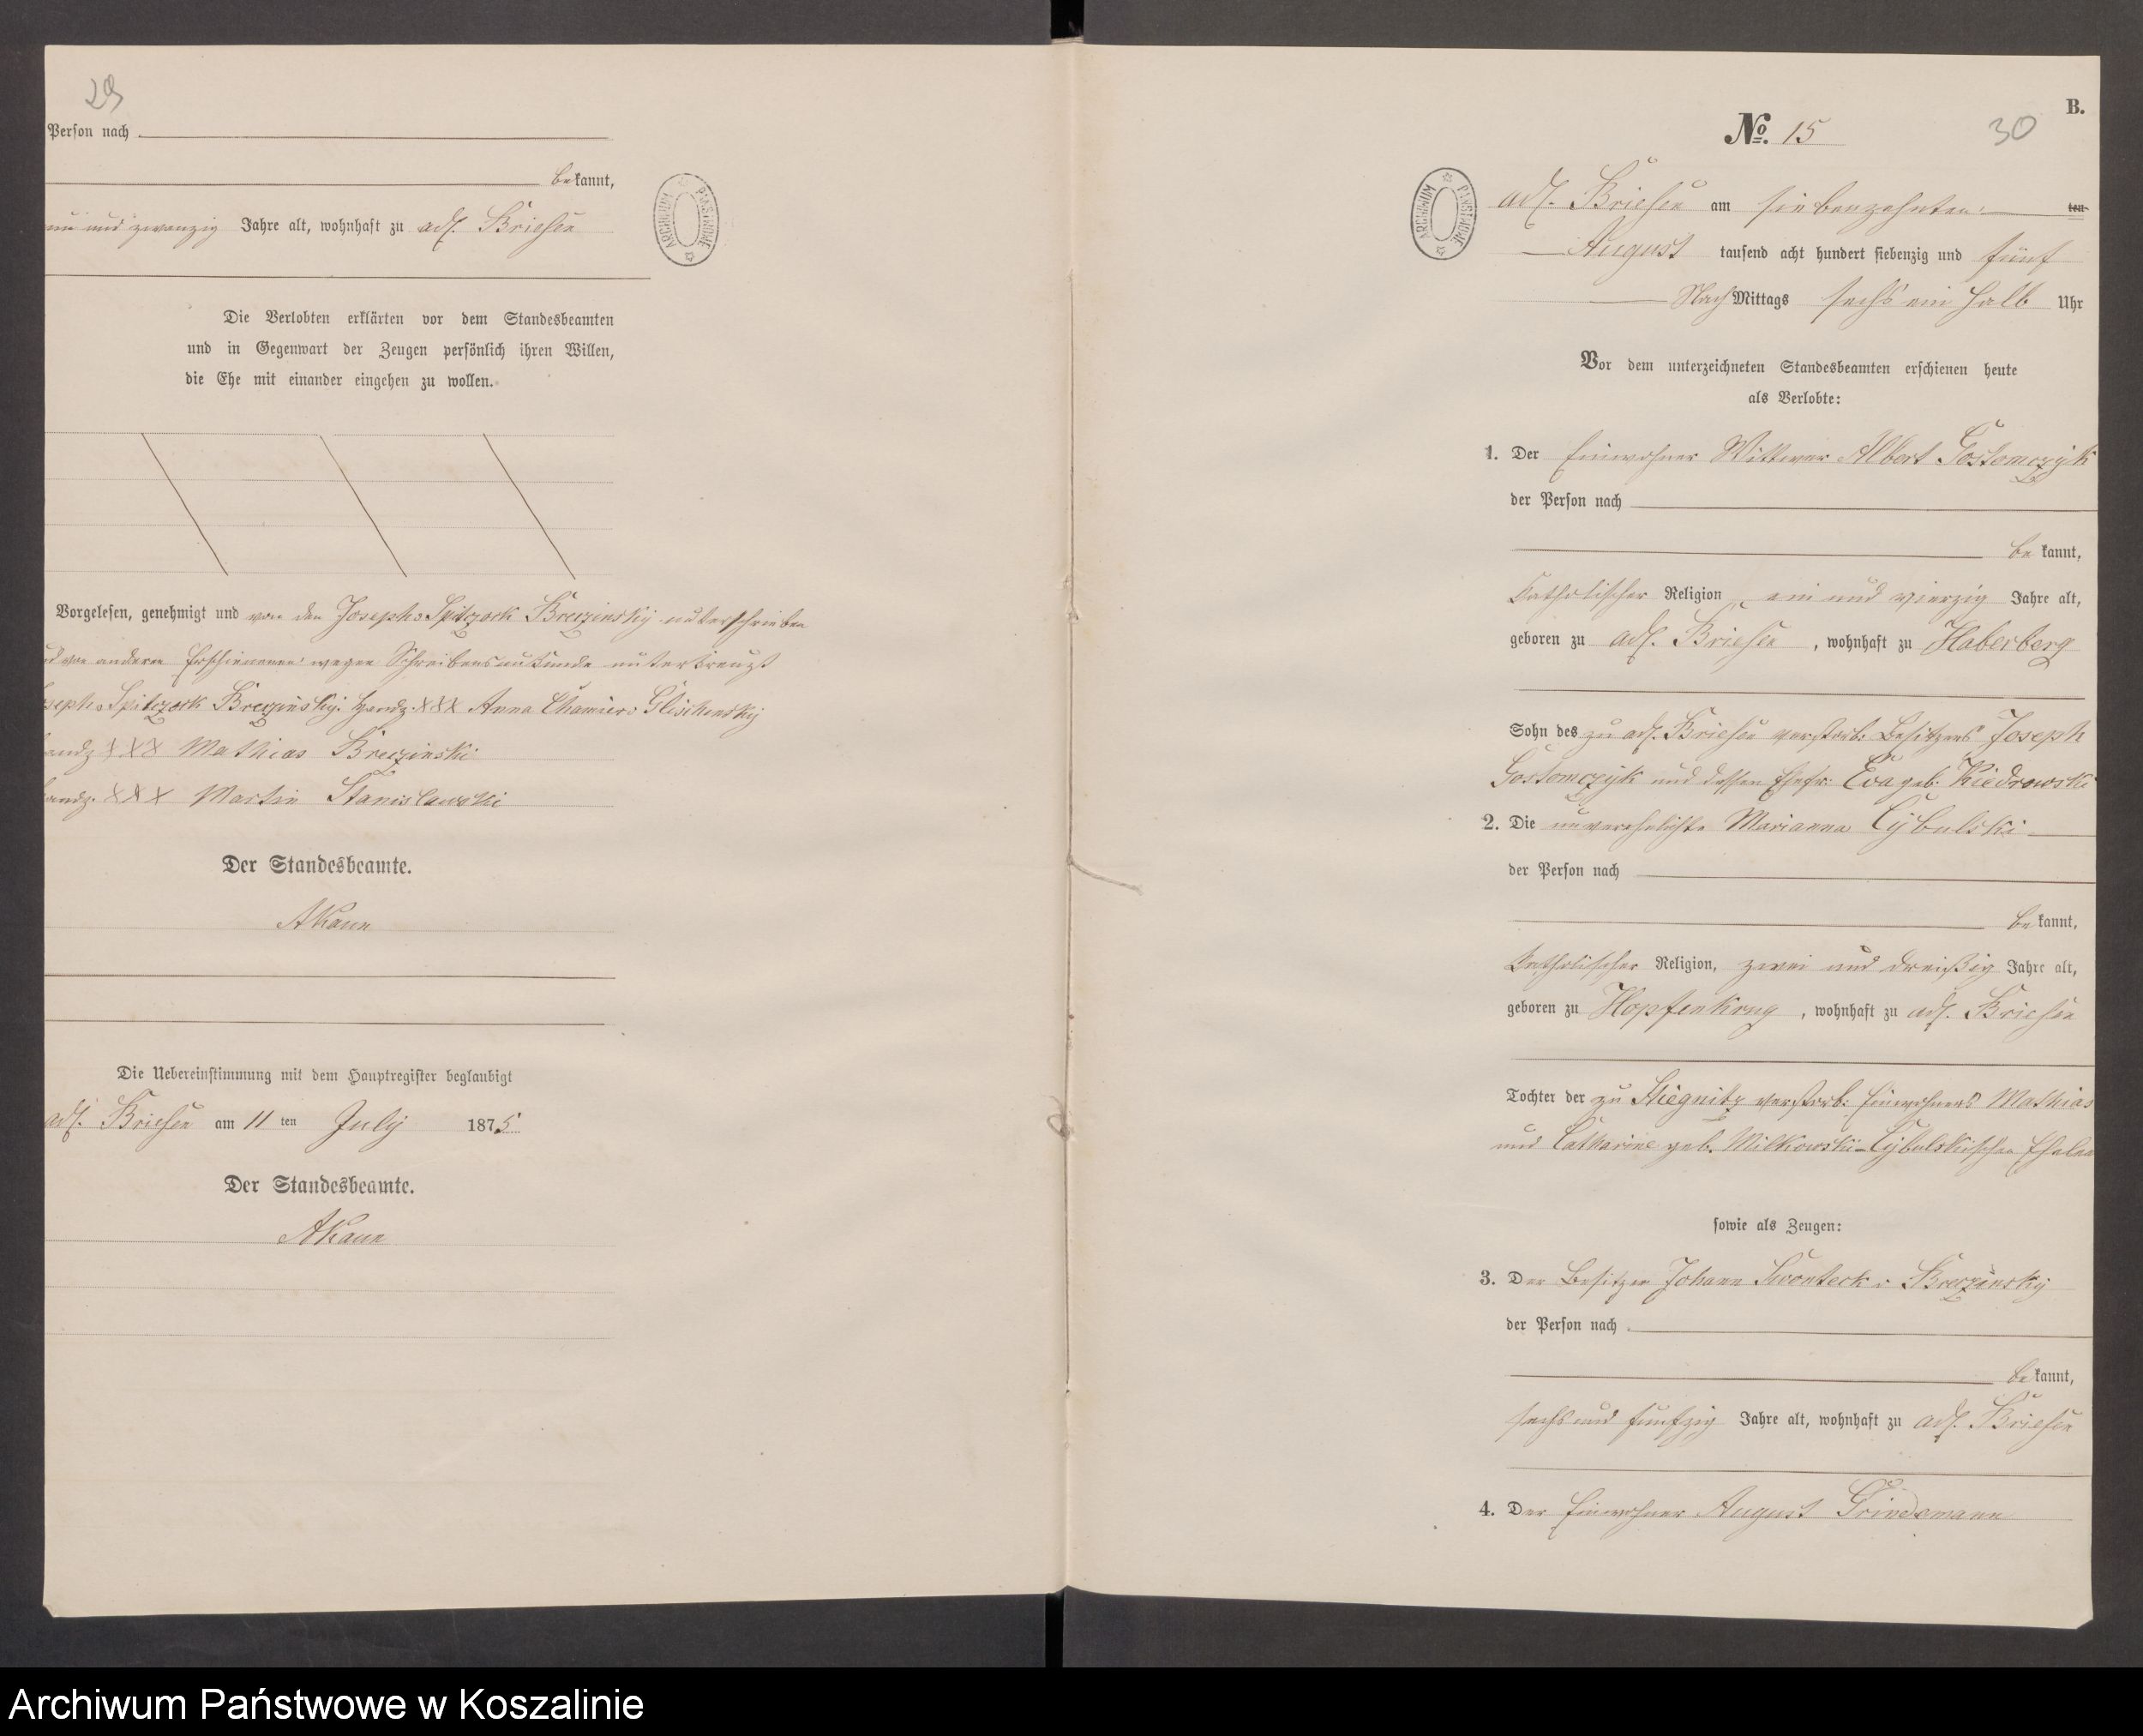 29
Person nach
bekannt,
und zwanzig Jahre alt, wohnhaft zu adl. Briesen
ARCHIWUM PAŃSTWOWE
Die Verlobten erklärten vor dem Standesbeamten
und in Gegenwart der Zeugen persönlich ihren Willen,
die Ehe mit einander eingehen zu wollen.
Vorgelesen, genehmigt und von den Joseph v Spitczack Breczinsky unterschrieben
von anderen Erschienenen wegen Schreibensunkunde unterkreuzt
Spitczack Breczinsky. Handz. XXX Anna Chamier v Glischinsky
XXX Mathias Breczinski
XXX Martin Stanislawski
Der Standesbeamte.
AKaun
Die Uebereinstimmung mit dem Hauptregister beglaubigt
adl. Briesen am 11 ten July 1875
Der Standesbeamte.
AKaun
B.
No. 15
30
ARCHIWUM PAŃSTWOWE
adl. Briesen am siebenzehnten ten
August tausend acht hundert siebenzig und fünf
Nach Mittags sechs ein halb Uhr
Vor dem unterzeichneten Standesbeamten erschienen heute
als Verlobte:
1. Der Einwohner Wittwer Albert Gostomczyk
der Person nach
be kannt,
Katholischer Religion, ein und vierzig Jahre alt,
geboren zu adl. Briesen, wohnhaft zu Haberberg
Sohn des zu adl. Briesen verstorb. Besitzers Joseph
Gostomczyk und dessen Ehefr. Eva geb. Kiedrowski
2. Die unverehelichte Marianna Cybulski
der Person nach
be kannt,
Katholischer Religion, zwei und dreißig Jahre alt,
geboren zu Hopfenkrug, wohnhaft zu adl. Briesen
Tochter der zu Stiegnitz verstorb. Einwohners Mathias
und Catharine geb. Milkowski-Cybulskischen
sowie als Zeugen:
3. Der Besitzer Johann v Breczinsky
der Person nach
be kannt,
sechs und funfzig Jahre alt, wohnhaft zu adl. Briesen
4. Der Einwohner August Grindemann
Archiwum Państwowe w Koszalinie